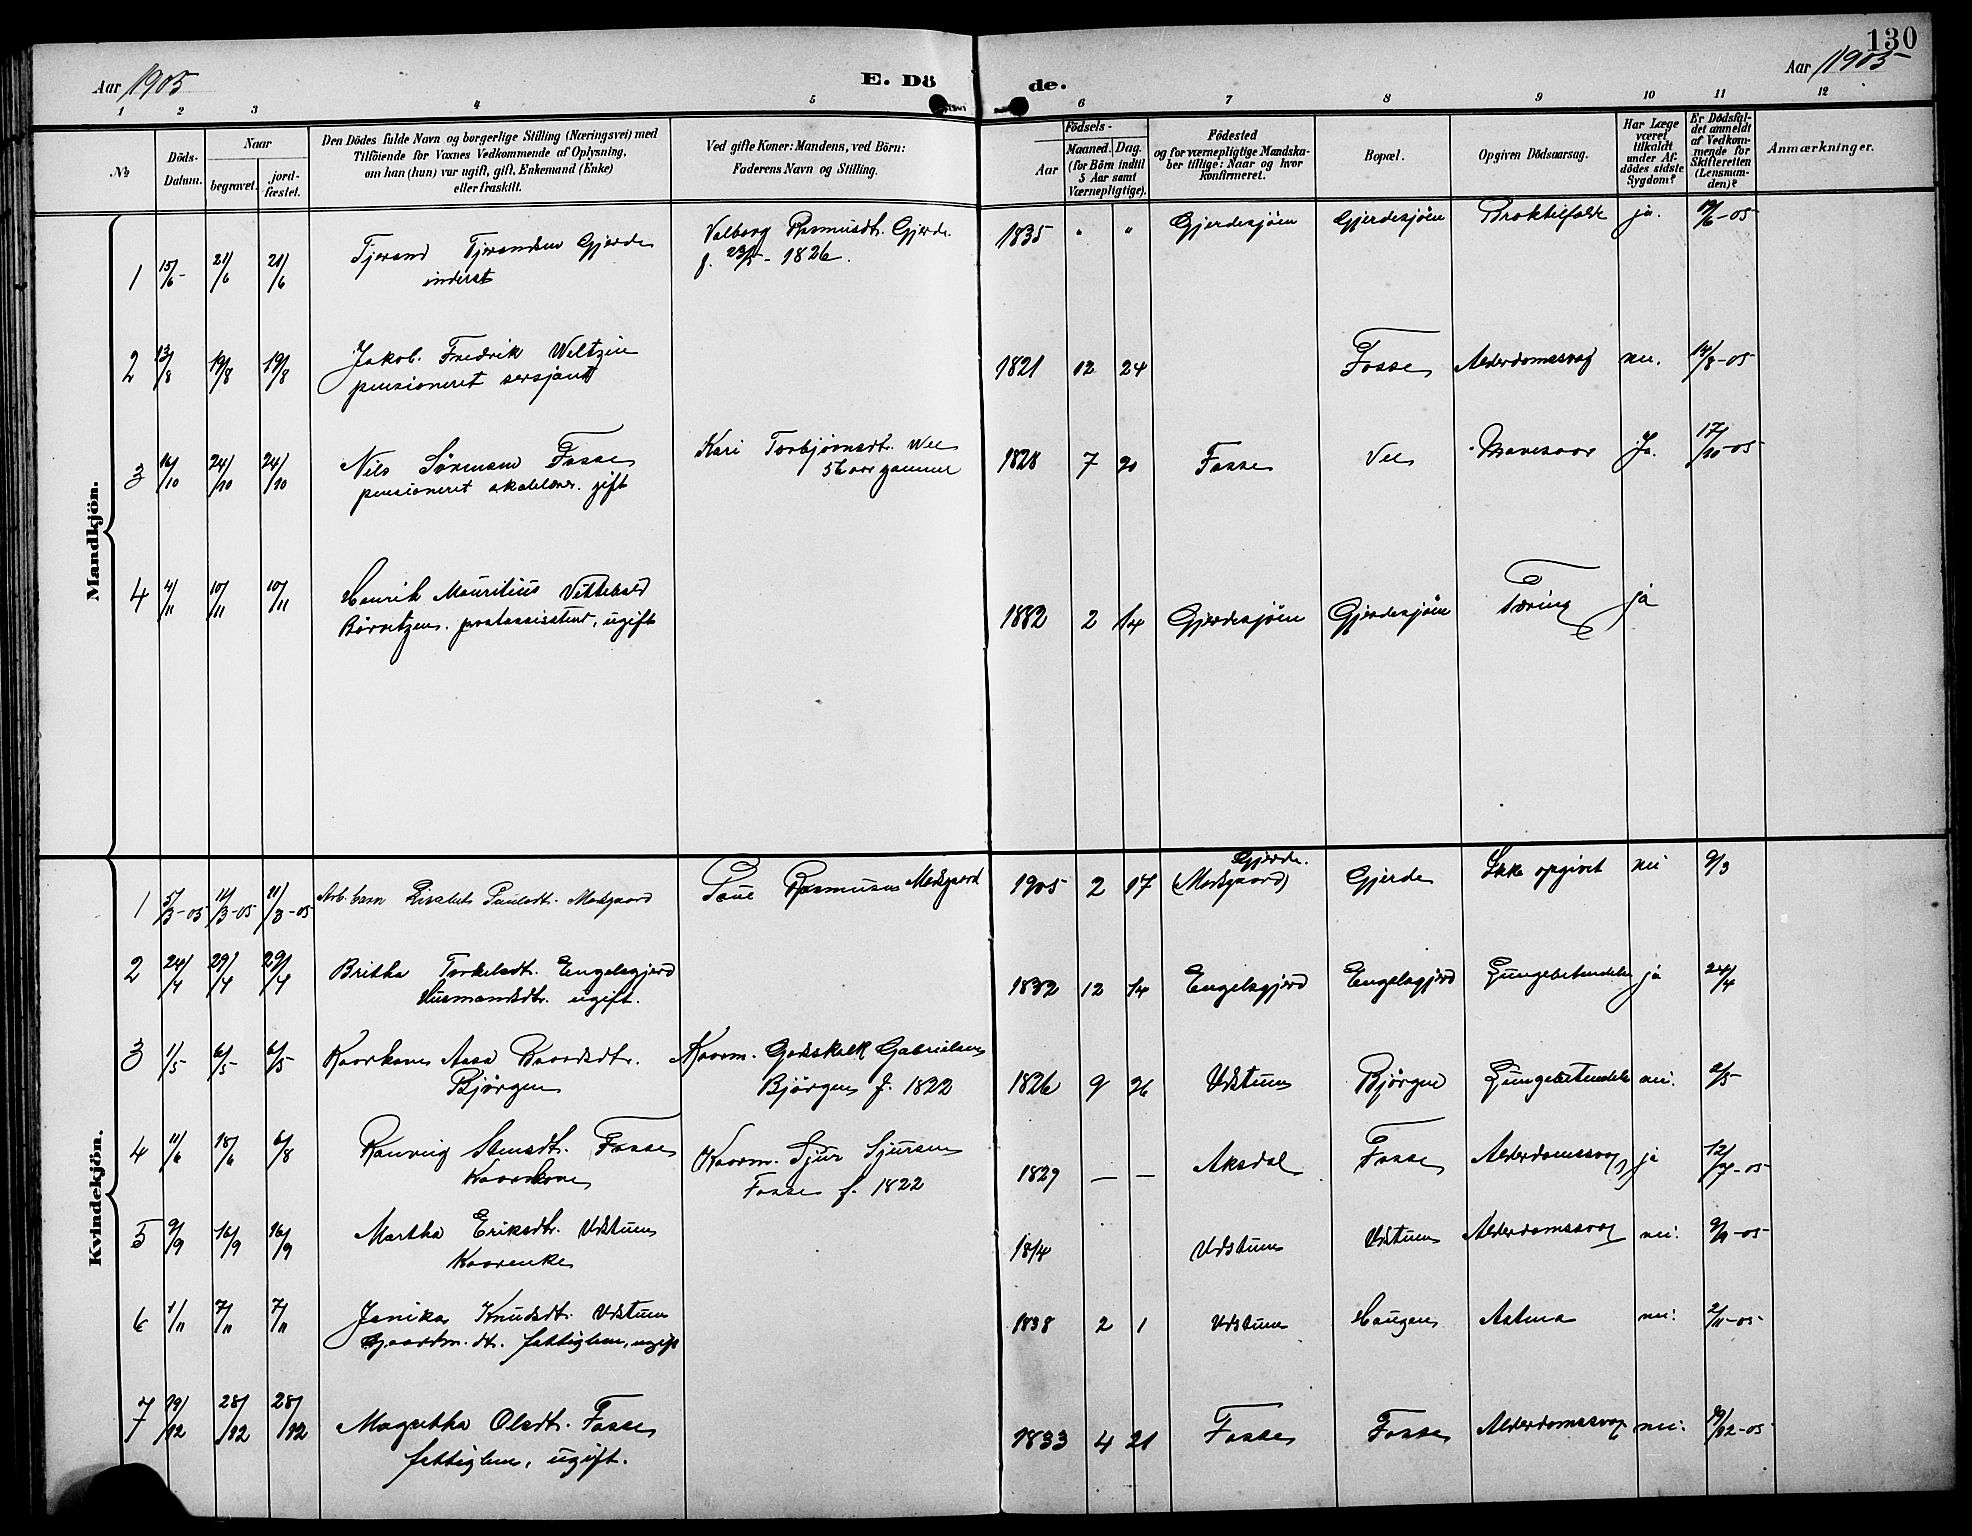 130
Aar 1905
E. Dö
de.
Aar 1905
1 2 3 4 5 6 7 8 9 10 11 12
№
Döds-
Datum.
Naar
begravet.
jord-
fæstet.
Den Dödes fulde Navn og borgerlige Stilling (Næringsvei) med
Tilföiende for Voxnes Vedkommende af Oplysning,
om han (hun) var ugift, gift, Enkemand (Enke)
eller fraskilt.
Ved gifte Koner: Mandens, ved Börn:
Faderens Navn og Stilling.
Födsels-
Aar
Maaned. Dag.
(for Börn indtil
5 Aar samt
Værnepligtige).
Födested
og for værnepligtige Mandska-
ber tillige: Naar og hvor
konfirmeret.
Bopæl.
Opgiven Dödsaarsag.
Har Læge
været
tilkaldt
under Af-
dödes sidste
Sygdom?
Er Dödsfal-
det anmeldt
af Vedkom-
mende for
Skifteretten
(Lensman-
den)?
Anmærkninger.
Mandkjön.
1 15/6 21/6 21/6 Tjerand Tjerandsen Gjerde
inderst
Valborg Rasmusdt. Gjerde
f. 23/5 - 1826.
1835 " " Gjerdesjøen Gjerdesjøen Broktilfælde ja. 19/6-05
2 13/8 19/8 19/8 Jakob Fredrik Weltzin
pensioneret sersjant
1821 12 24 Fosse Alderdomssvag nei. 14/8-05
3 16/10 24/10 24/10 Nils Sørensen Fosse
pensioneret skolelærer. gift
Kari Torbjørnsdt. Vee
56 aar gammel
1828 7 20 Fosse Vee Mavesaar Ja. 17/10-05
4 4/11 10/11 10/11 Henrik Mauritius Vettebold
Børretzen. postassistent, ugift
1882 2 14 Gjerdesjøen Gjerdesjøen Tæring ja
Kvindekjön.
1 5/3-05 11/3-05 11/3-05 Arb. barn Lisabet Paulsdt. Medgaard
Rasmusen Medgaard
1905 2 17 Gjerde.
(Medgaard) Gjerde Ikke opgivet nei 9/3
2 24/4 29/4 29/4 Britha Torkelsdt. Engelsgjerd
Husmandsdtr. ugift.
1832 12 14 Engelsgjerd Engelsgjerd Lungebetendelse ja 24/4
3 1/5 6/5 6/5 Kaarkone Aasa Baardsdtr.
Bjørgen
Kaarm. Godskalk Gabrielsen
Bjørgen f. 1822
1826 9 26 Udstuen Bjørgen Lungebetendelse nei. 2/5
4 11/6 18/6 6/8 Ranveig Stensdt. Fosse
Kaarkone
Kaarm. Sjur Sjursen
Fosse f. 1822
1829 — — Aksdal Fosse Alderdomssvag ja 12/7-05
5 9/9 16/9 16/9 Martha Eriksdtr. Udstuen
Kaarenke
1814 Udstuen Udstuen Alderdomssvag nei. 9/9-05
6 1/11 7/11 7/11 Janika Knudsdt. Udstuen
Gaardm. dt. fattiglem, ugift
1838 2 1 Udstuen Haugen Astma nei. 2/11-05
7 19/12 28/12 28/12 Magretha Olsdt. Fosse
fattiglem, ugift.
1833 4 21 Fosse Fosse Alderdomssvag nei. 19/12-05